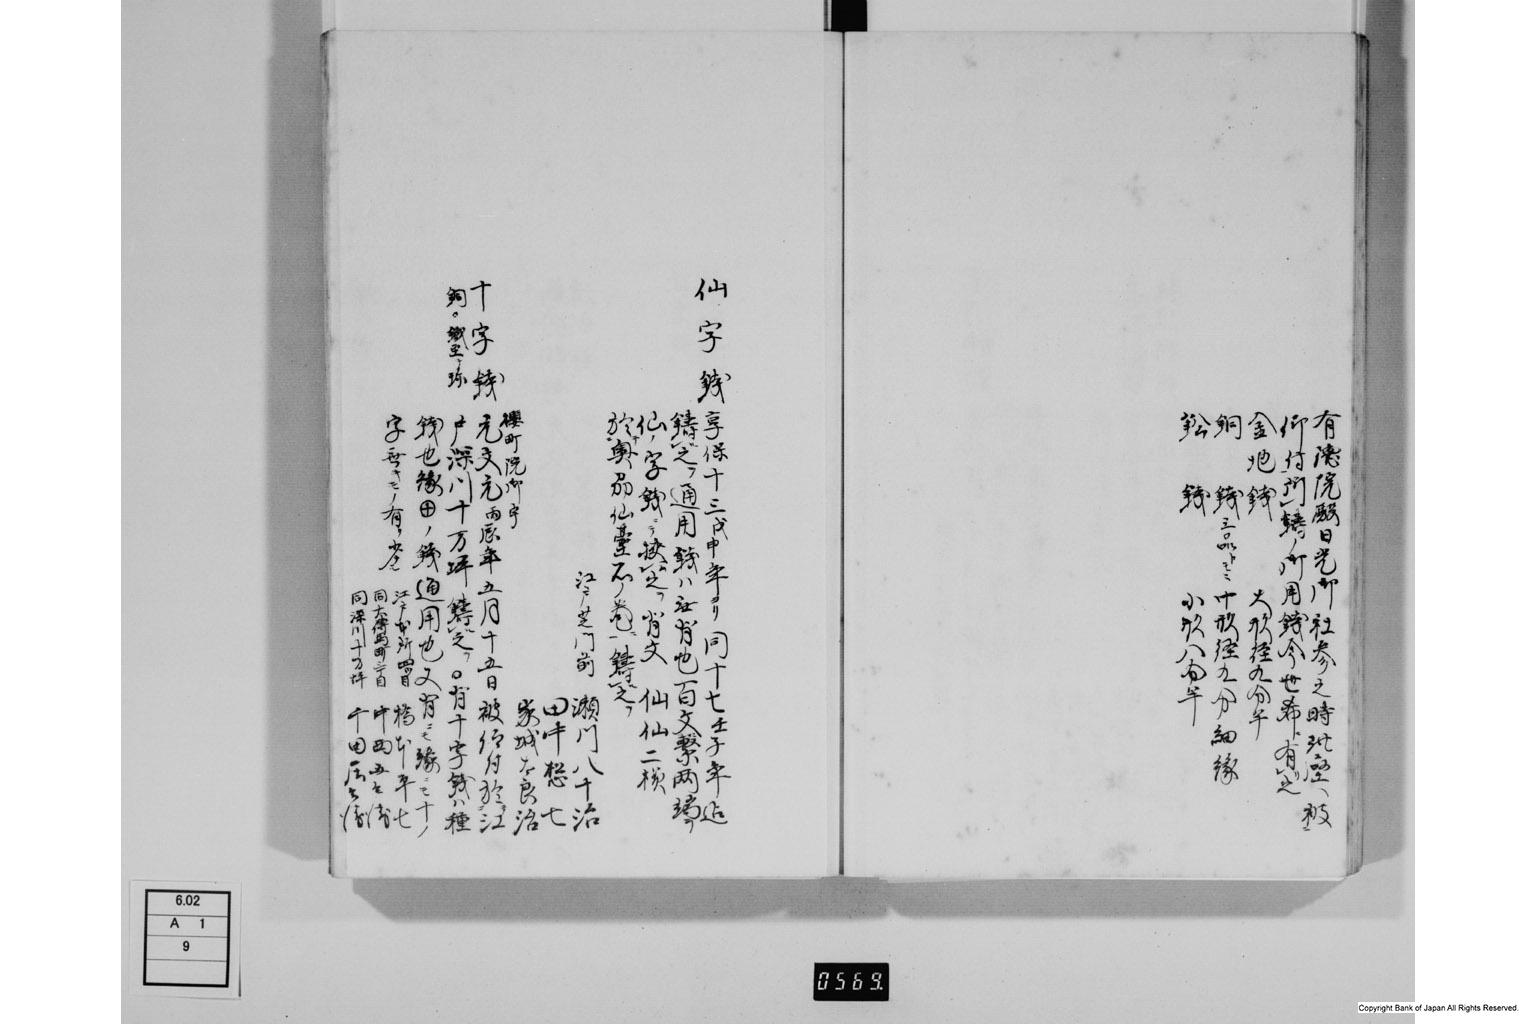 有徳院殿日光御社参之時
仰付
御用銭今世希ニ有之
金地銭　大形径九分半
銅銭　中形径九分細縁
鈆銭　小形八分半
仙字銭
享保十三戊申年ヨリ同十七壬子年迄
鋳之　通用銭ハ　背也百文繋両端
仙ノ字銭ニテ　之　背文　仙仙二様
於奥州仙臺石ノ巻ニ鋳之
江戸芝門前　瀬川八十治
田中　七
家城太良治
十字銭
銅
櫻町院御宇
元文元丙辰年五月十五日被仰付於江
戸深川十万坪鋳之　背十字銭ハ種
銭也縁ノ銭通用也又背ニモ縁ニモ十ノ
字無キモノ有リ
江戸本所四目　橋本平七
同大傳馬町三丁目　中西五
同深川十万坪　千田
6.02
A 1
9
0569
Copyright Bank of Japan All Rights Reserved.